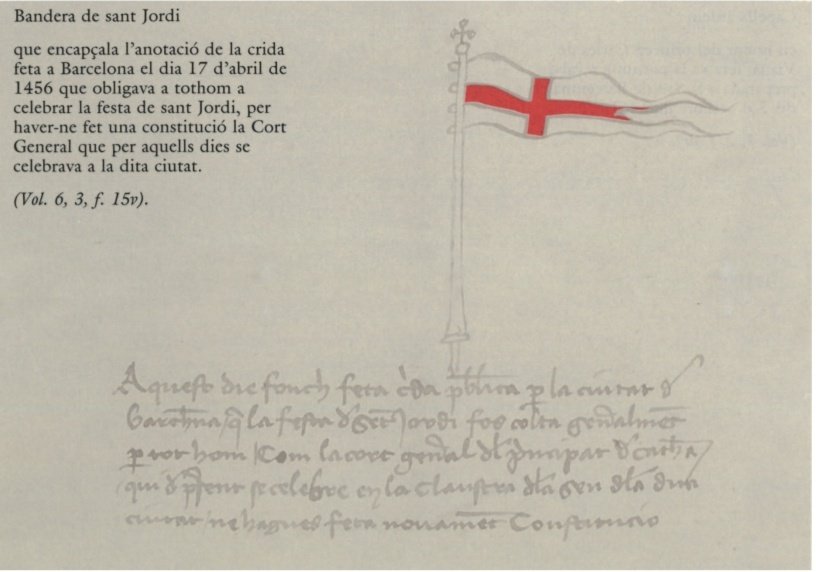 Bandera de sant Jordi
que encapçala l’anotació de la crida
feta a Barcelona el dia 17 d’abril de
1456 que obligava a tothom a
celebrar la festa de sant Jordi, per
haver-ne fet una constitució la Cort
General que per aquells dies se
celebrava a la dita ciutat.
(Vol. 6, 3, f. 15v).
Aquest die fonch feta c̀da pb̄lica p̱ la ciutat d
barch̄na q̄ la festa d sēt Jordi fos colta gen̄alment
p̱ tot hom Com la cort gen̄al dl p̀ncipat d cath̄a
qui d p̄sent se celebre en la Claustra dla seu dla dita
ciutat ne hagues feta novamēt Constitucio